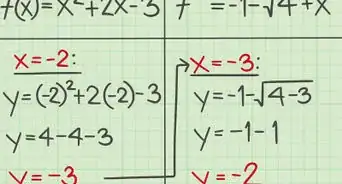 f(x)=x²+2x-3
f =-1-√4+x
x=-2:
y=(-2)²+2(-2)-3
y=4-4-3
y=-3
x=-3:
y=-1-√4-3
y=-1-1
y=-2